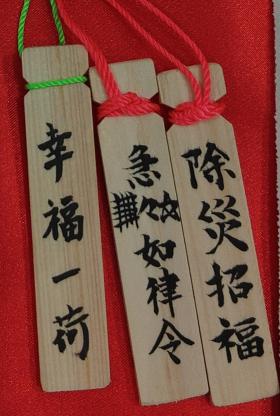 除災招福
急々如律令
幸福一荷